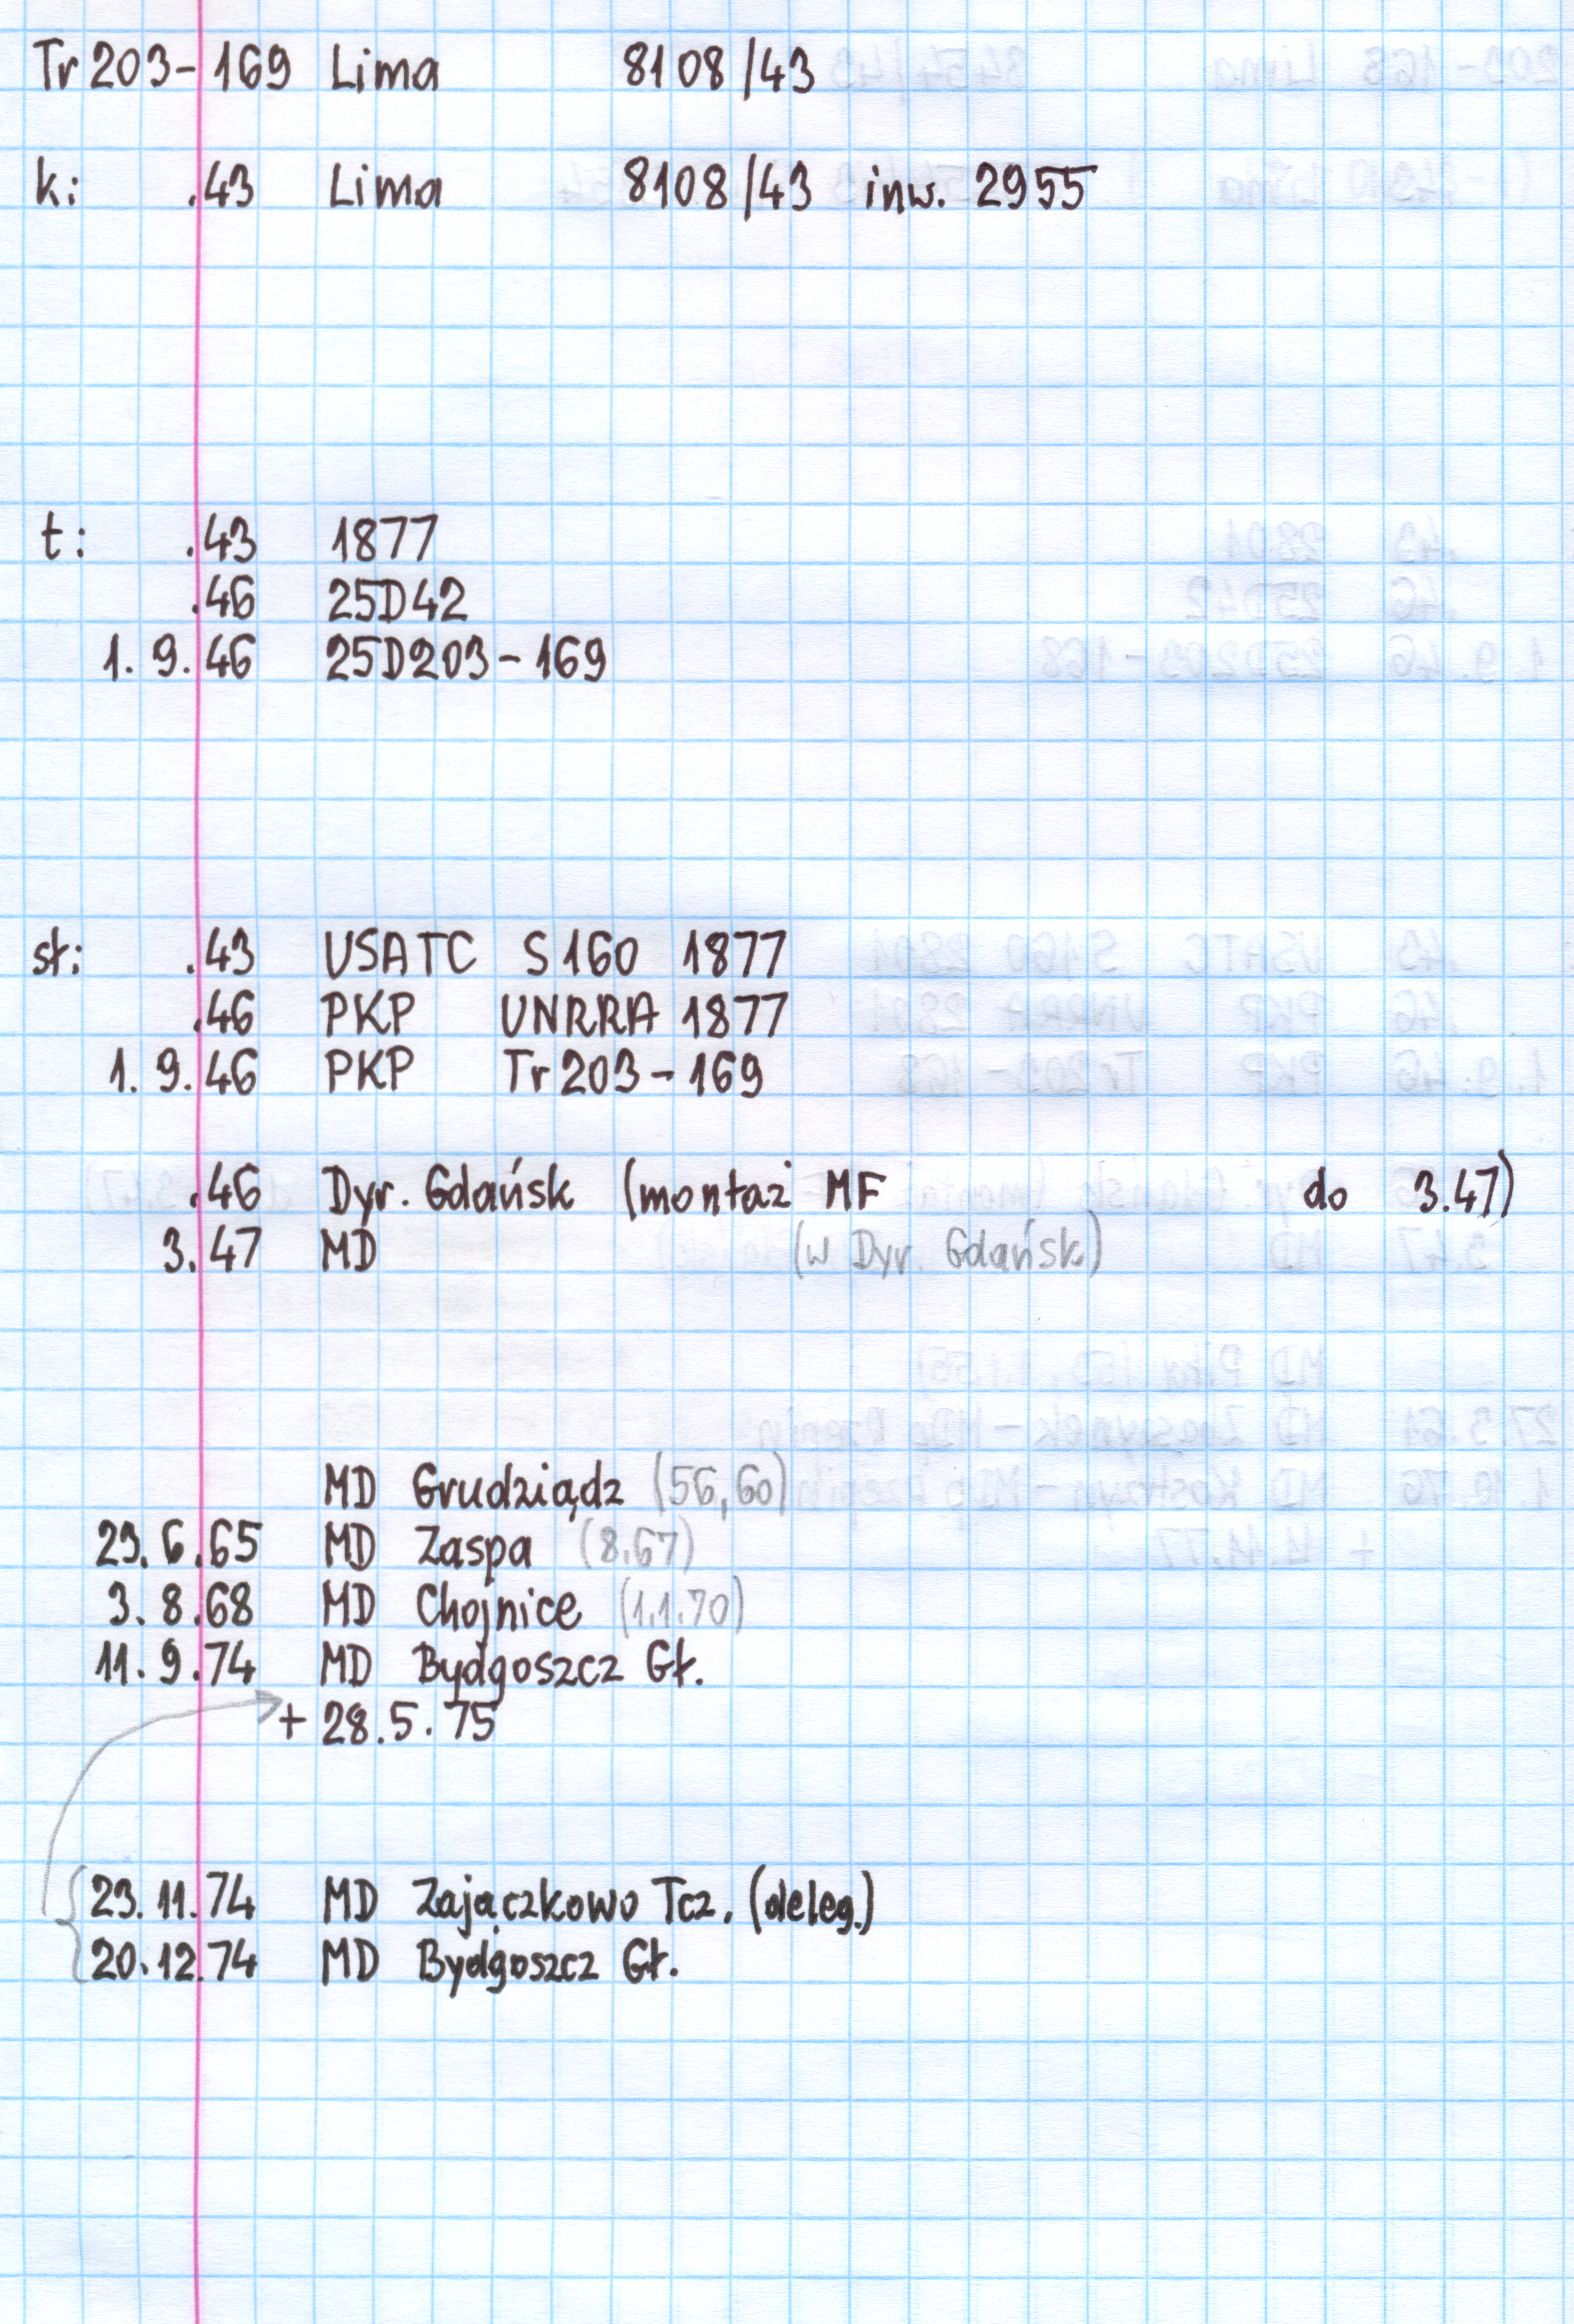 Tr 203-169 Lima 8108/43
k: .43 Lima 8108/43 inw. 2955
t: .43 1877
.46 25D42
1. 9. 46 25D203-169
sł: .43 USATC S160 1877
.46 PKP UNRRA 1877
1. 9. 46 PKP Tr 203-169
.46 Dyr. Gdańsk (montaż MF do 3.47)
3.47 MD (w Dyr. Gdańsk)
MD Grudziądz (56,60)
29. 6. 65 MD Zaspa (8.67)
3. 8. 68 MD Chojnice (1.1.70)
11. 9. 74 MD Bydgoszcz Gł.
+ 28. 5. 75
23. 11. 74 MD Zajączkowo Tcz. (deleg.)
20. 12. 74 MD Bydgoszcz Gł.